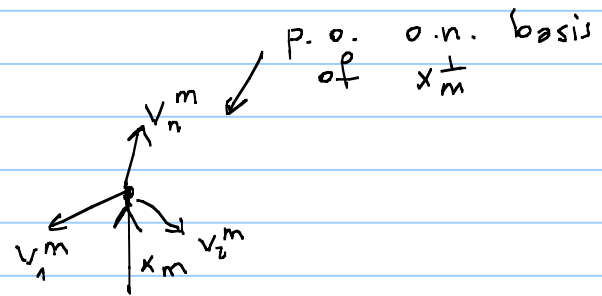 p. o. o.n. basis
of x_m^⊥
v_n^m
v_1^m x_m v_2^m